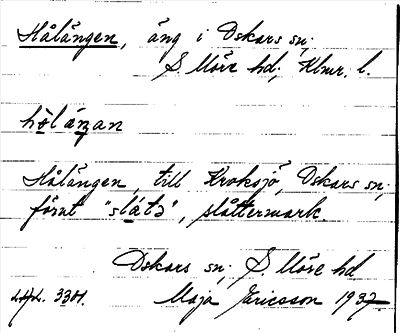 Hålängen, äng i Oskars sn;
S. Möre hd; Klmr. l.
hòláŋan
Hålängen, till Kroksjö, Oskars sn;
förut "slátə", slåttermark.
Oskars sn; S. Möre hd
334. Maja Ericsson 1937.